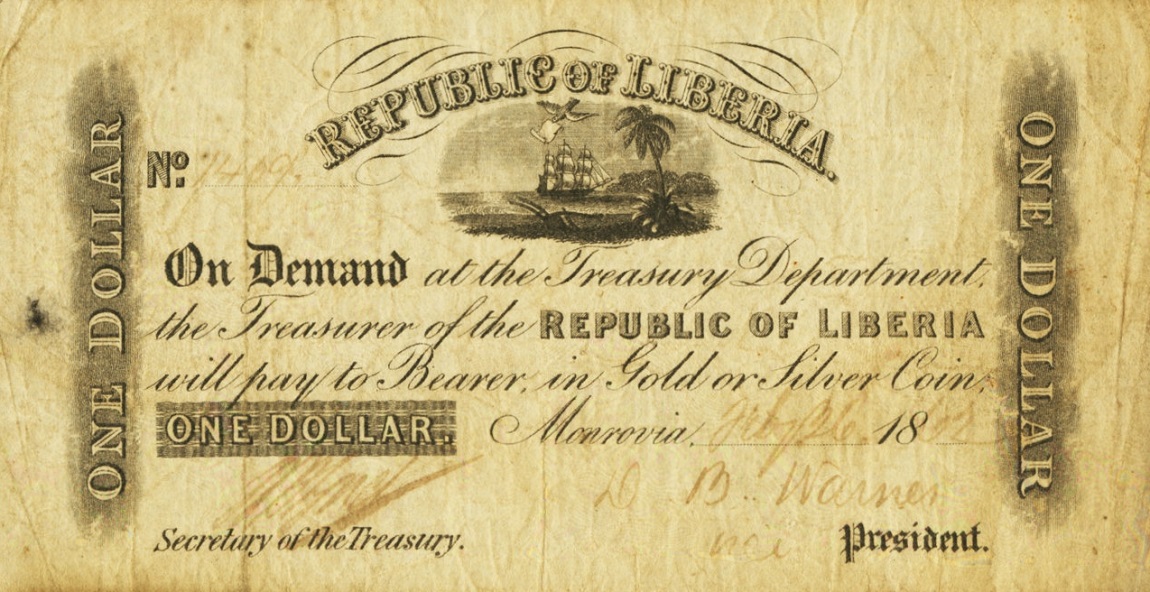 REPUBLIC OF LIBERIA.
No.
ONE DOLLAR
ONE DOLLAR
On Demand at the Treasury Department,
the Treasurer of the REPUBLIC OF LIBERIA
will pay to Bearer, in Gold or Silver Coin,
ONE DOLLAR. Monrovia, 18
D B. Warner
Secretary of the Treasury. President.